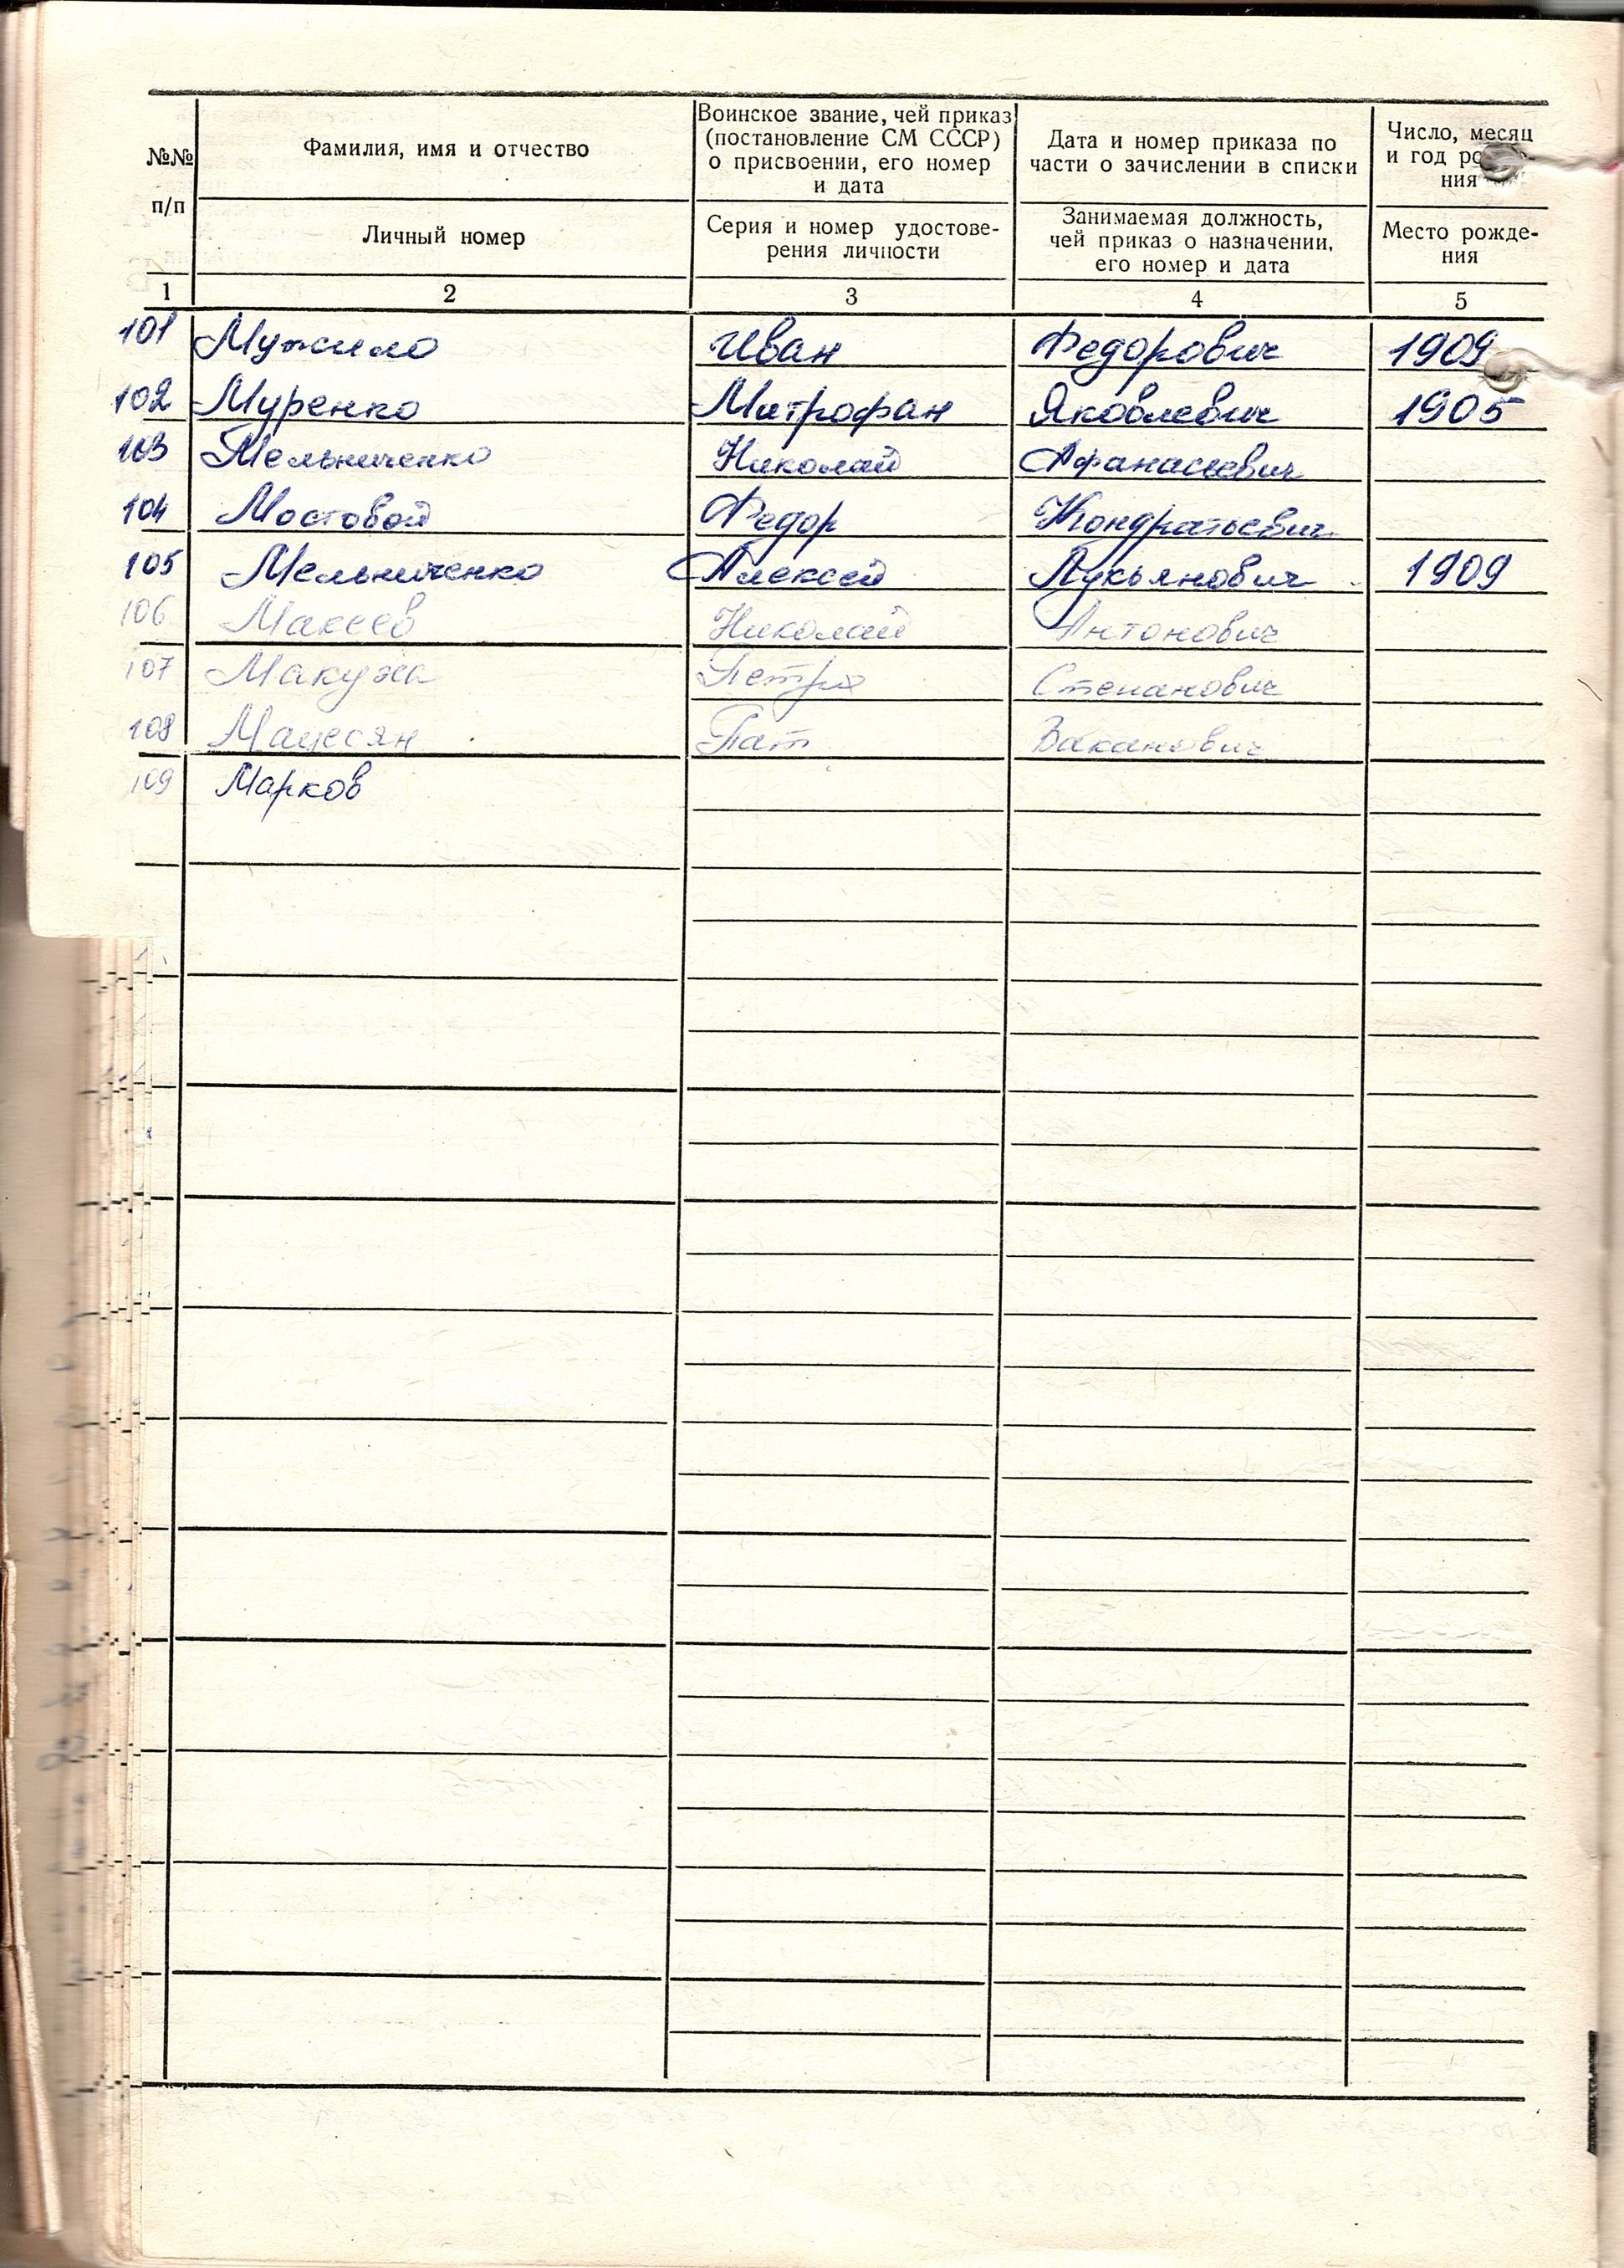 №№ п/п
Фамилия, имя и отчество
Личный номер
Воинское звание, чей приказ
(постановление СМ СССР)
о присвоении, его номер
и дата
Серия и номер удостове-
рения личности
Дата и номер приказа по
части о зачислении в списки
Занимаемая должность,
чей приказ о назначении,
его номер и дата
Число, месяц
и год
ния
Место рожде-
ния
1 2 3 4 5
101 Мужило Иван Федорович 1909
102 Муренко Митрофан Яковлевич 1905
103 Мельниченко Николай Афанасьевич
104 Мостовой Федор Кондратьевич
105 Мельниченко Алексей Лукьянович 1909
106 Макеев Николай Антонович
107 Макуха Степанович
108 Пат Ваканович
109 Марков